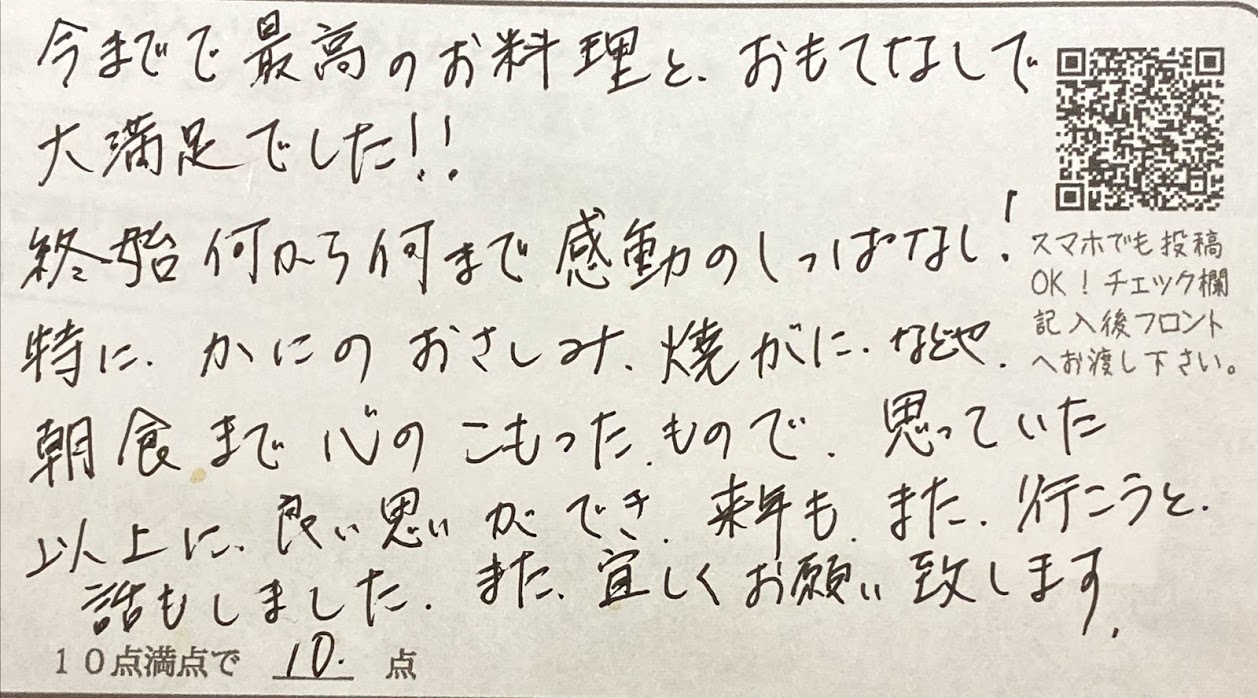 今までで最高のお料理と、おもてなしで
大満足でした!!
終始何から何まで感動のしっぱなし!
特に、かにのおさしみ、焼がに、などや、
朝食まで心のこもった、もので、思っていた
以上に、良い思いができ、来年も、また、行こうと、
話もしました。また、宜しくお願い致します。
10点満点で 10. 点
スマホでも投稿
OK!チェック欄
記入後フロント
へお渡し下さい。